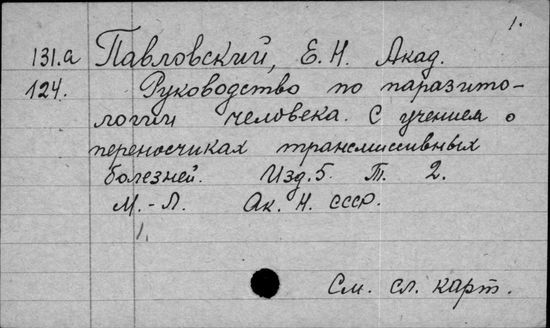 1.
131.a Павловский, Е. Н. Акад.
124. Руководство по паразито-
логии человека. С учением о
переносчиках трансмиссивных
болезней. Изд. 5. Т. 2.
М.-Л. Ак. Н. СССР.
1.
См. сл. карт.